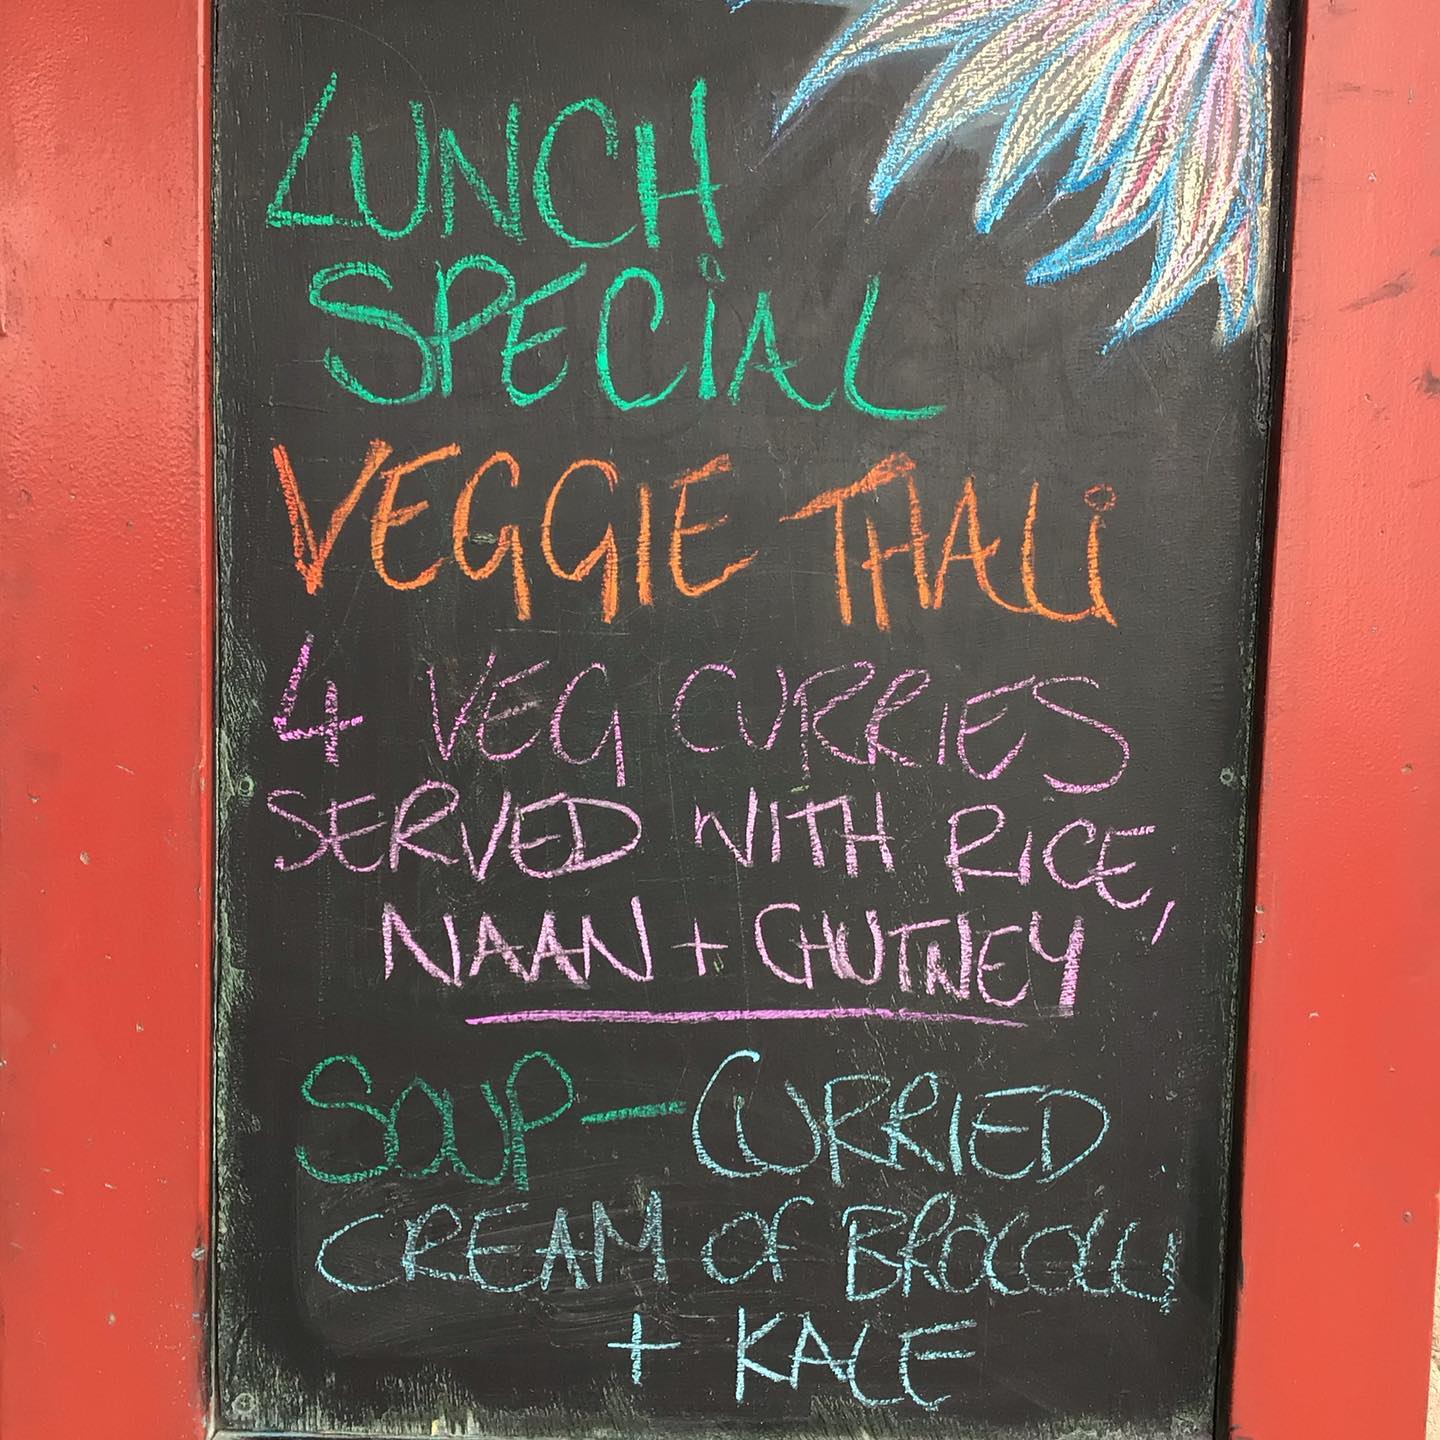 LUNCH
SPECiAL
VEGGIE THALi
4 VEG CURRIES
SERVED WITH RICE,
NAAN + CHUTNEY
SOUP - CURRIED
CREAM OF BROCOLLI
+ KALE